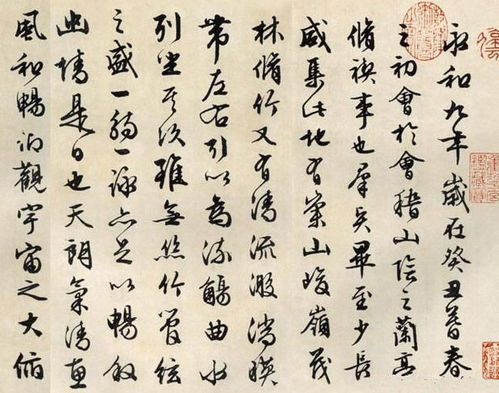 永和九年歲在癸丑暮春
之初會於會稽山陰之蘭亭
脩禊事也羣賢畢至少長
咸集此地有崇山峻嶺茂
林脩竹又有清流激湍映
帶左右引以為流觴曲水
列坐其次雖無絲竹管絃
之盛一觴一詠亦足以暢敘
幽情是日也天朗氣清惠
風和暢仰觀宇宙之大俯